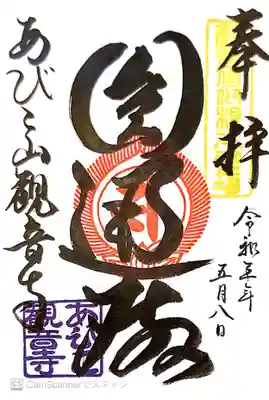 奉拝
令和五年
五月八日
圓通殿
あびこ山観音寺
あびこ
観音寺
CamScannerでスキャン